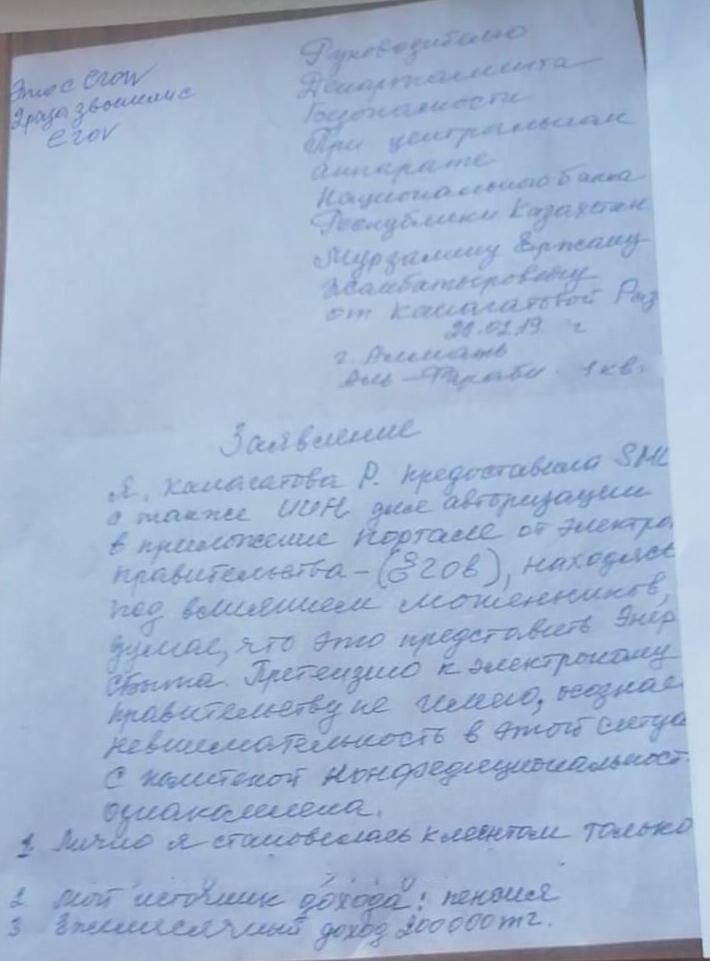 Это с egov
2 раза звонили с
egov
Руководителю
Департамента
Безопасности
При центральном
аппарате
Национального банка
Республики Казахстан
Мурзалину Ержану
Жамбатыровичу
от Каналатовой Раз
г. Алматы
Аль-Фараби 1 кв.
Заявление
Я, Каналатова Р. предоставила SMS
а также ИИН для авторизации
в приложение портале от электро
правительства - (Егов), находясь
под влиянием мошенников,
думая, что это представить Энер
Сбыта. Претензию к электроному
правительству не имею, осознаю
невнимательность в этой ситуа
С политекой конфедециональност
ознакомлена.
1 Лично я становилась клиентом только
2 мой источник дохода: пенсия
3 Ежимесячный доход 200000тг.